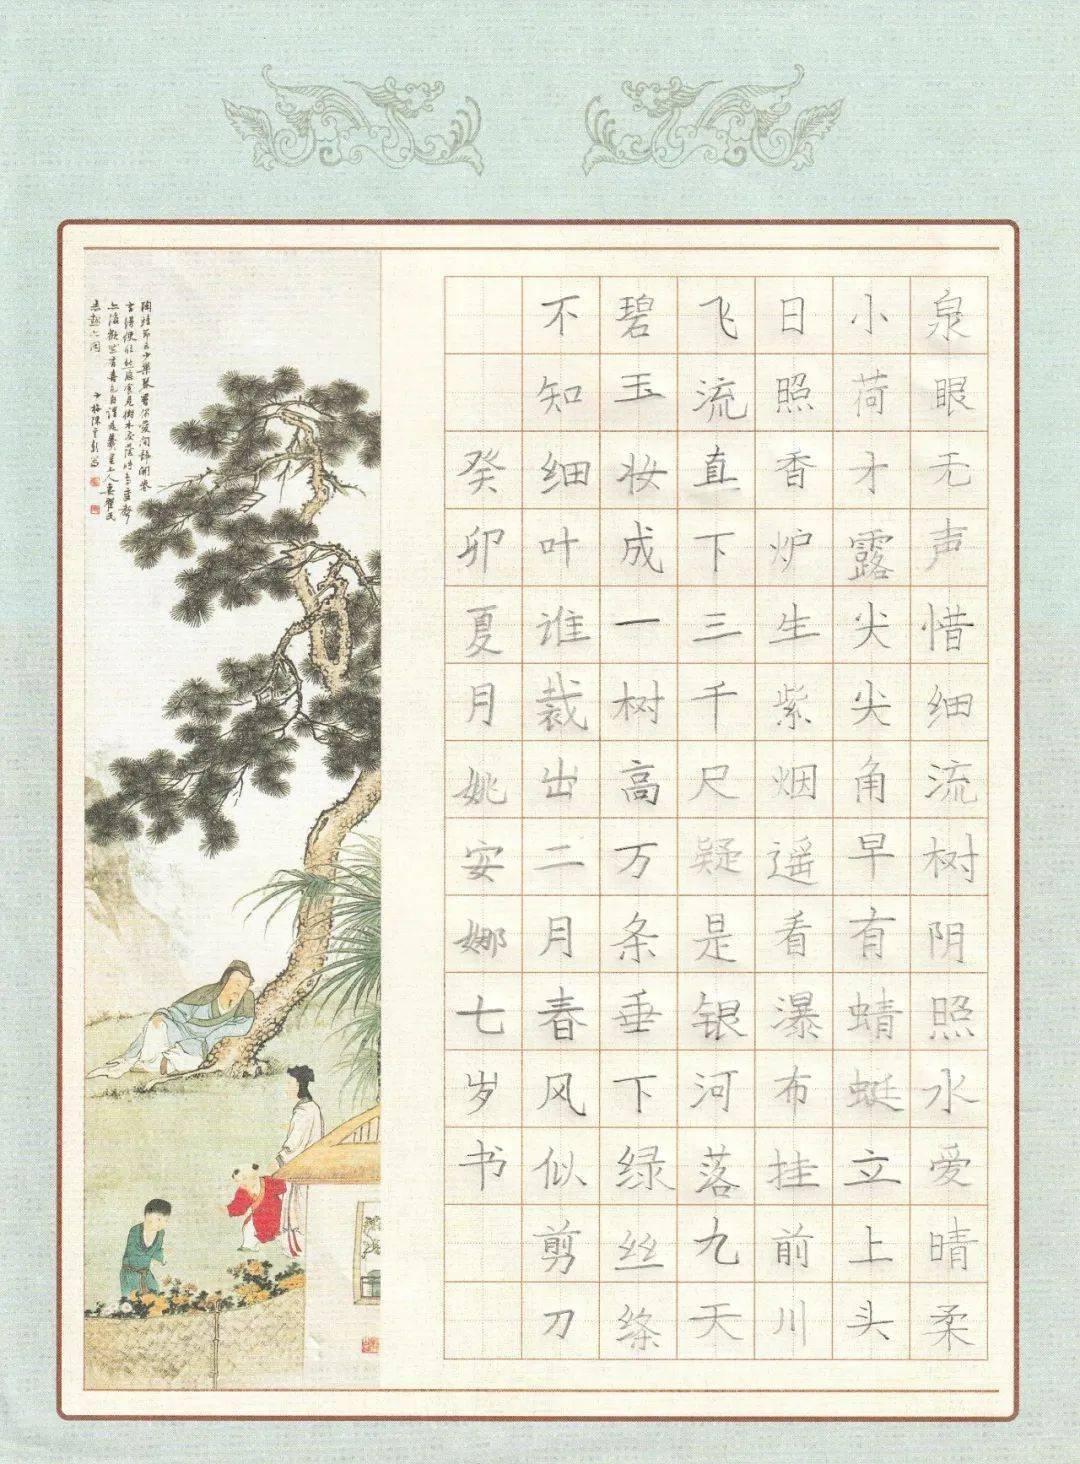 泉眼无声惜细流树阴照水爱晴柔
小荷才露尖尖角早有蜻蜓立上头
日照香炉生紫烟遥看瀑布挂前川
飞流直下三千尺疑是银河落九天
碧玉妆成一树高万条垂下绿丝绦
不知细叶谁裁出二月春风似剪刀
癸卯夏月姚安娜七岁书